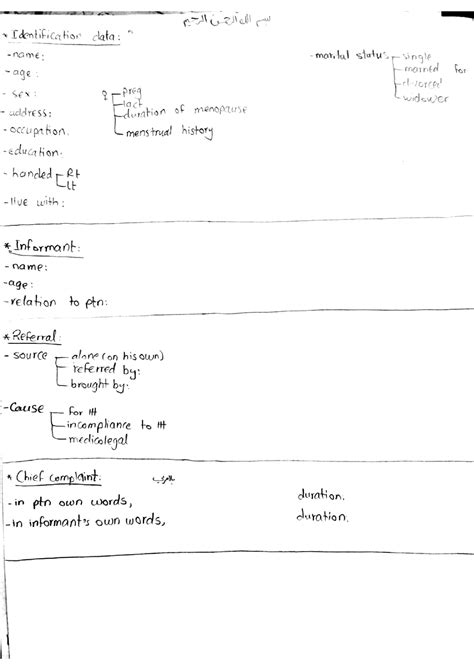 بسم الله الرحمن الرحيم
* Identification data:
-name:
-age:
-sex: ♀ preg
lact
duration of menopause
menstrual history
-marital status: single
married for
divorced
widower
-address:
-occupation.
-education.
-handed Rt
Lt
-live with:
* Informant:
-name:
-age:
-relation to ptn:
* Referral:
-source alone (on his own)
referred by:
brought by:
-Cause for ttt
incompliance to ttt
medicolegal
* Chief complaint: بالعربي
-in ptn own words, duration.
-in informant's own words, duration.